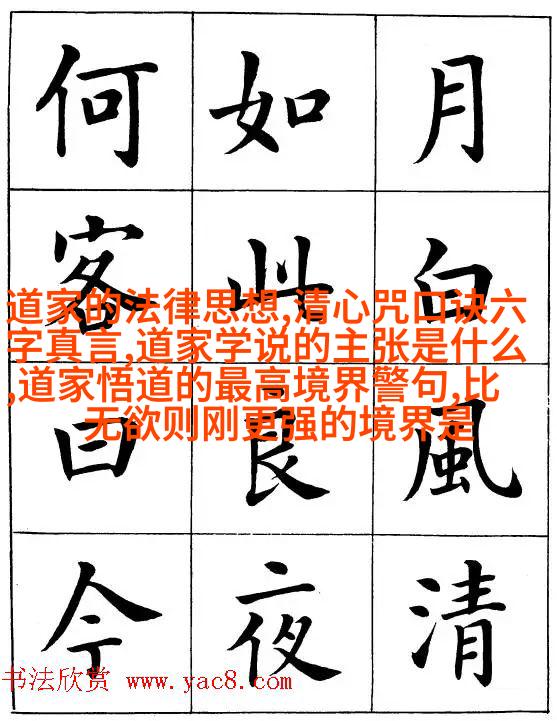 月白風清
如此良夜
何客曰今
道家的法律思想,清心咒口诀六
字真言,道家学说的主张是什么
,道家悟道的最高境界警句,比
无欲则刚更强的境界是
书法欣赏 www.yac8.com